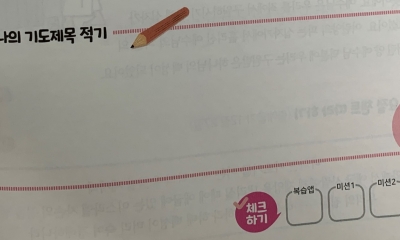 나의 기도제목 적기
체크
하기
복습앱
미션1
미션2